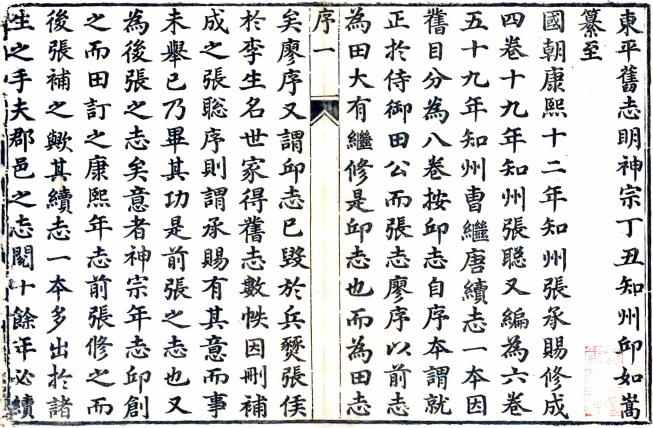 東平舊志明神宗丁丑知州邱如嵩
纂至
國朝康熙十二年知州張承賜修成
四卷十九年知州張聡又編為六卷
五十九年知州曺繼唐續志一本因
舊目分為八卷按邱志自序本謂就
正於侍御田公而張志廖序以前志
為田大有繼修是邱志也而為田志
序一
矣廖序又謂邱志已毀於兵燹張侯
於李生名世家得舊志數帙因刪補
成之張聡序則謂承賜有其意而事
未舉已乃畢其功是前張之志也又
為後張之志矣意者神宗年志邱創
之而田訂之康熙年志前張修之而
後張補之歟其續志一本多出於諸
生之手夫郡邑之志閱十餘年必續